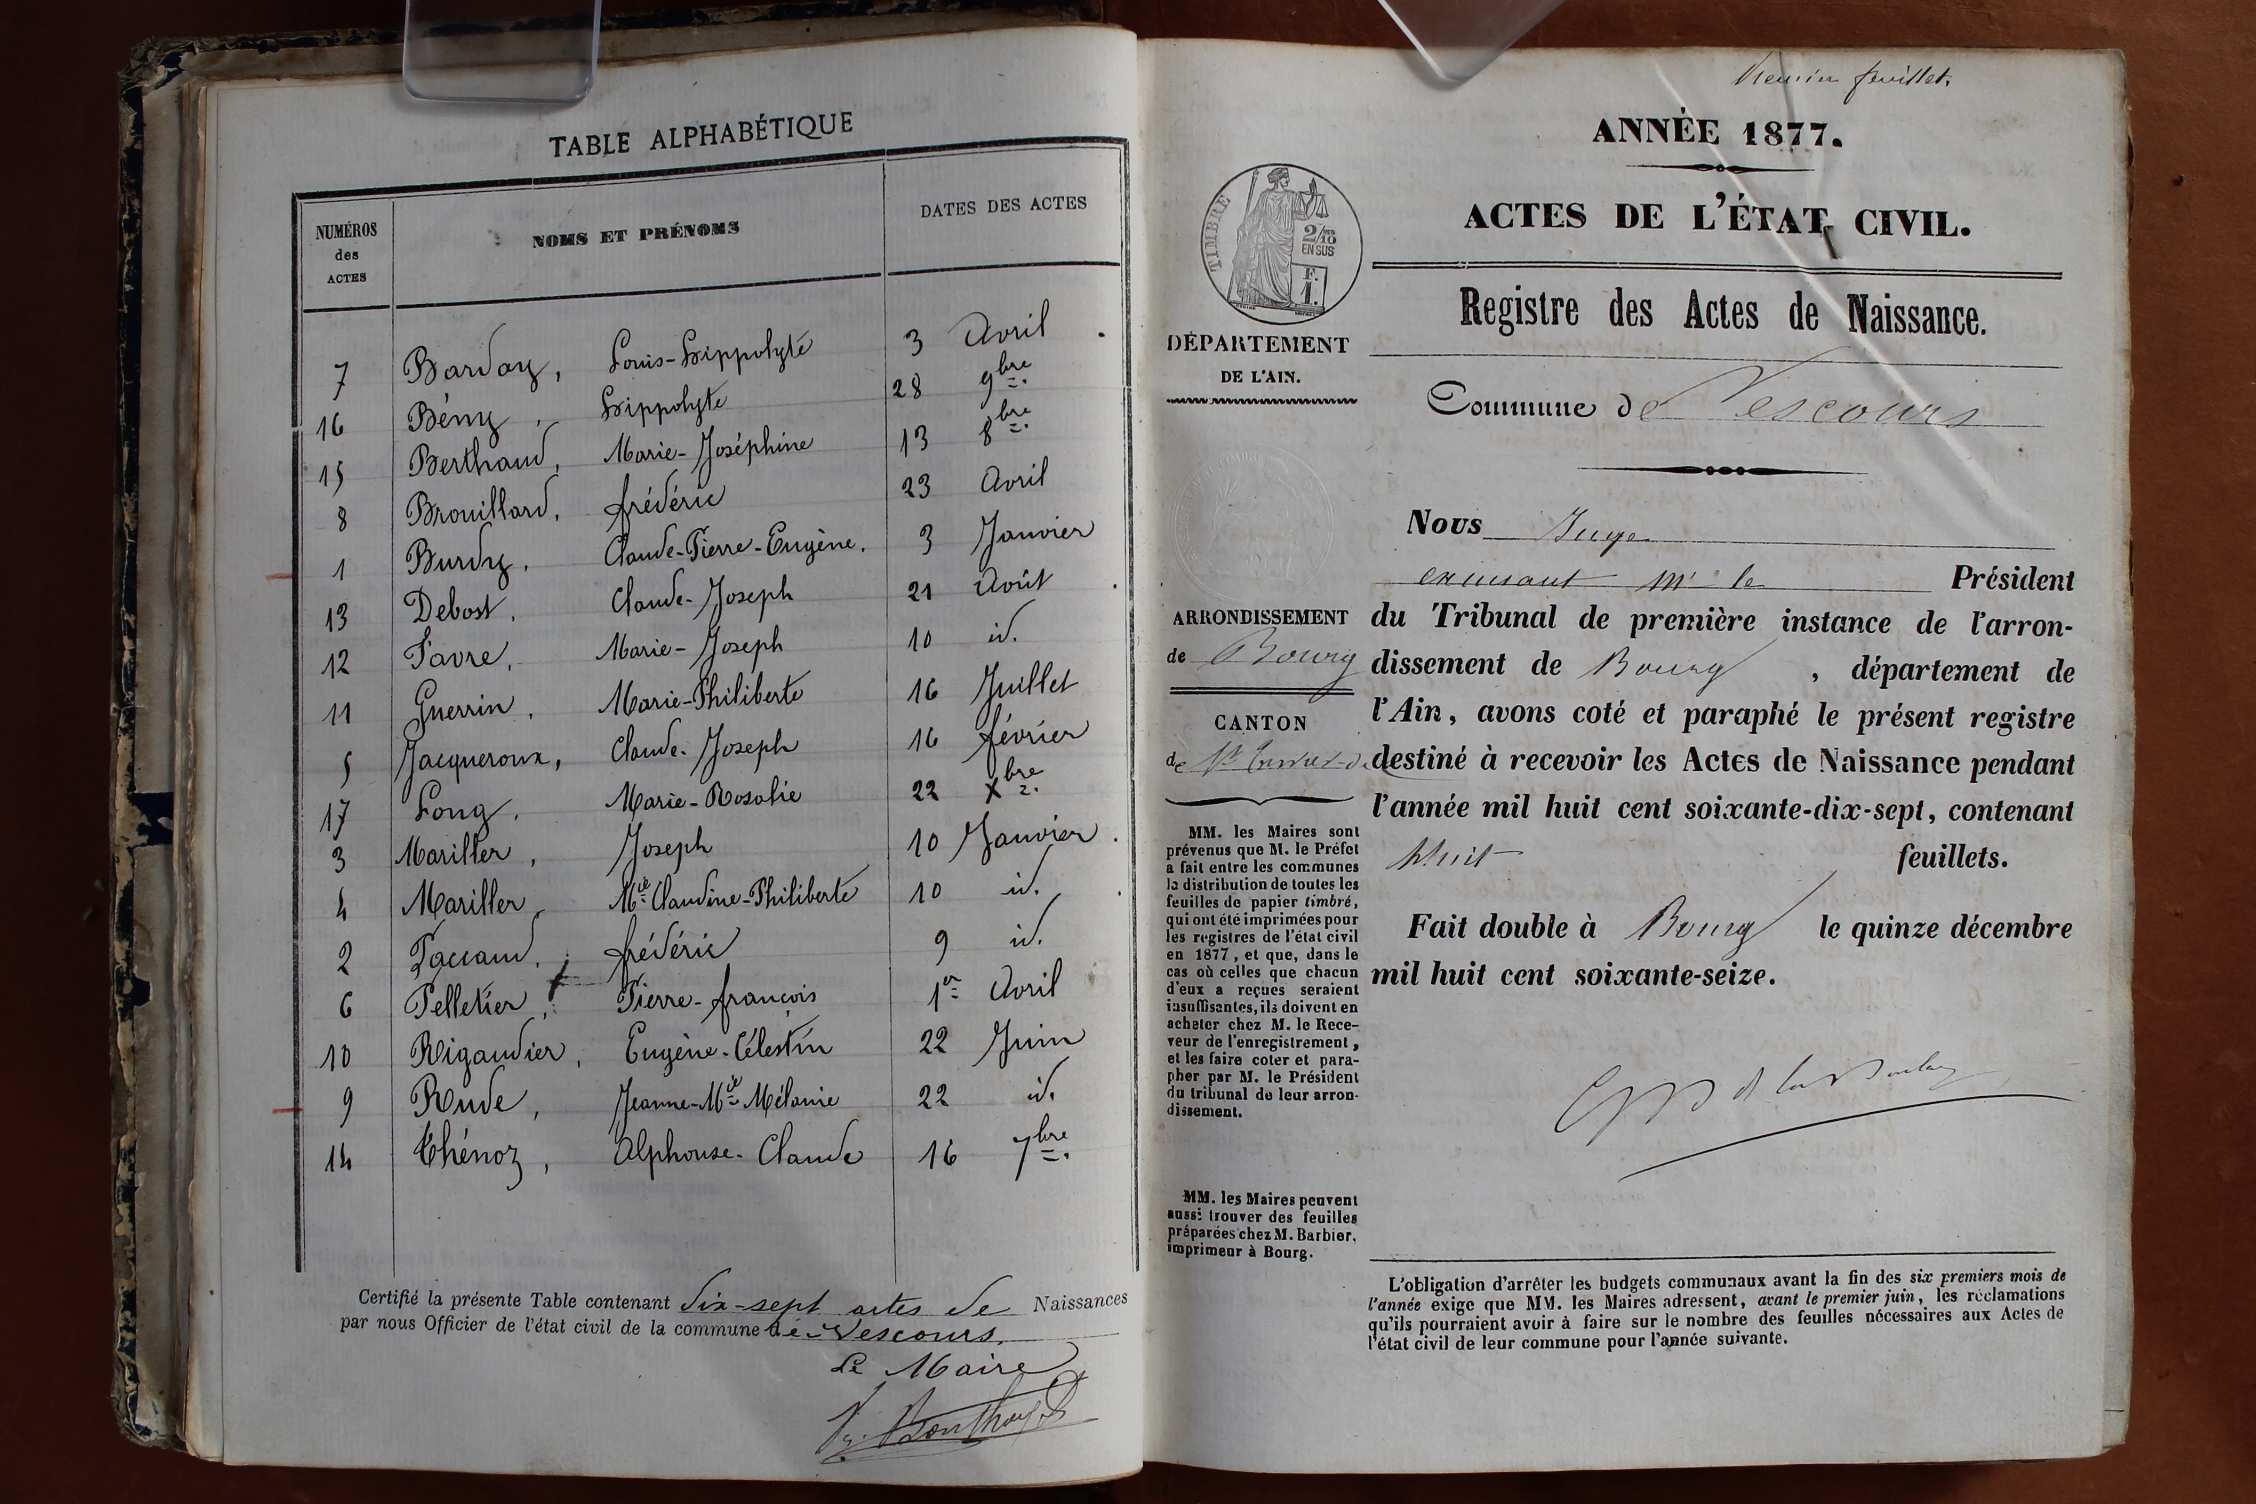 TABLE ALPHABÉTIQUE
NUMÉROS des ACTES
NOMS ET PRÉNOMS
DATES DES ACTES
7 Barday, Louis-Hippolyte 3 Avril
16 Bény, Hippolyte 28 9bre
15 Berthaud, Marie-Joséphine 13 8bre
8 Brouillard, frédéric 23 Avril
1 Burdy, Claude-Pierre-Eugène. 3 Janvier
13 Debost, Claude-Joseph 21 Août
12 Favre, Marie-Joseph 10 id.
11 Guerrin, Marie-Philiberte 16 Juillet
5 Jacqueroux, Claude-Joseph 16 février
17 Long, Marie-Rosalie 22 Xbre
3 Mariller, Joseph 10 Janvier
4 Mariller, Mie Claudine-Philiberte 10 id.
2 Paccaud, frédéric 9 id.
6 Pelletier, Pierre-françois 1er Avril
10 Rigaudier, Eugène-Célestin 22 Juin
9 Rude, Jeanne-Mie Mélanie 22 id.
14 Chénoz, Alphonse-Claude 16 7bre
Certifié la présente Table contenant dix-sept actes de Naissances
par nous Officier de l'état civil de la commune de Vescours.
Le Maire
Premier feuillet.
ANNÉE 1877.
ACTES DE L'ÉTAT CIVIL.
TIMBRE
2/10
EN SUS
F.
1.
Registre des Actes de Naissance.
DÉPARTEMENT
DE L'AIN.
Commune de Vescours
Nous Juge
excusant Mr le Président
du Tribunal de première instance de l'arron-
dissement de Bourg, département de
l'Ain, avons coté et paraphé le présent registre
destiné à recevoir les Actes de Naissance pendant
l'année mil huit cent soixante-dix-sept, contenant
huit feuillets.
Fait double à Bourg le quinze décembre
mil huit cent soixante-seize.
ARRONDISSEMENT
de Bourg
CANTON
de St
MM. les Maires sont
prévenus que M. le Préfet
a fait entre les communes
la distribution de toutes les
feuilles de papier timbré,
qui ont été imprimées pour
les registres de l'état civil
en 1877, et que, dans le
cas où celles que chacun
d'eux a reçues seraient
insuffisantes, ils doivent en
acheter chez M. le Rece-
veur de l'enregistrement,
et les faire coter et para-
pher par M. le Président
du tribunal de leur arron-
dissement.
MM. les Maires peuvent
aussi trouver des feuilles
préparées chez M. Barbier,
imprimeur à Bourg.
L'obligation d'arrêter les budgets communaux avant la fin des six premiers mois de
l'année exige que MM. les Maires adressent, avant le premier juin, les réclamations
qu'ils pourraient avoir à faire sur le nombre des feuilles nécessaires aux Actes de
l'état civil de leur commune pour l'année suivante.